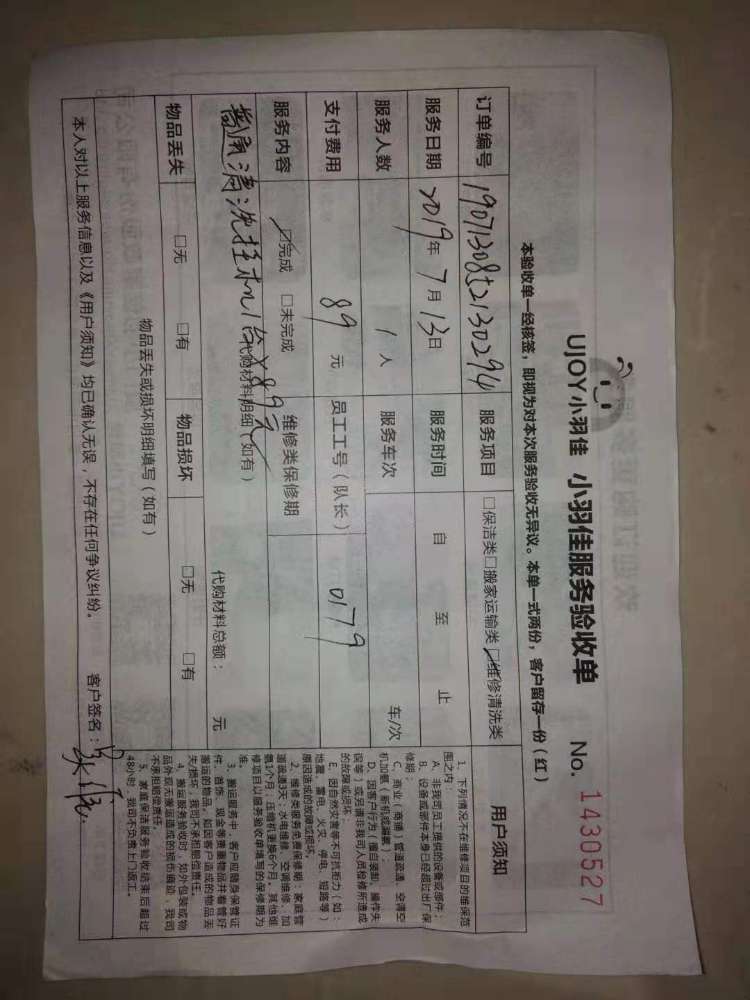 UJOY小羽佳 小羽佳服务验收单 No. 1430527
本验收单一经核签，即视为对本次服务验收无异议。本单一式两份，客户留存一份（红）
订单编号 服务项目 □保洁类□搬家运输类☑维修清洗类
服务日期 2019年7月13日 服务时间 自 至 止
服务人数 1人 服务车次 车/次
支付费用 89元 员工工号（队长） 0179
服务内容 ☑完成 □未完成 维修类保修期
清洗挂机1台×89元
代购材料明细（如有） 代购材料总额： 元
物品丢失 □无 □有 物品损坏 □无 □有
物品丢失或损坏明细填写（如有）
本人对以上服务信息以及《用户须知》均已确认无误，不存在任何争议纠纷。 客户签名：
用户须知
1、下列情况不在维修项目的维保范
围之内：
A、非我司员工提供的设备或部件；
B、设备或部件本身已经超过出厂保
修期；
C、商业（商铺）管道疏通、空调空
机加氨（新机或漏氨）；
D、因客户行为（擅自装卸、操作失
误等）或另请非我司人员检修所造成
的故障或损坏
E、因自然灾害等不可抗拒力（如：
地震、雷电、火灾、停电、短路等）
原因造成的故障或损坏
2、维修类服务免费保修期：家庭管
道疏通3天；水电维修、空调维修、加
氨1个月；压缩机更换6个月。其他维
修项目以服务验收单填写的保修期为
准。
3、搬运服务中，客户应随身保管证
件、首饰、现金等贵重物品并看管好
搬运的物品，如因客户造成的物品丢
失/损坏，我司不承担赔偿责任。
4、搬运服务验收时，如外包装或物
品外观无搬运造成的损伤痕迹，我司
不承担赔偿责任。
5、家庭保洁服务验收结束后超过
48小时，我司不负责上门返工。